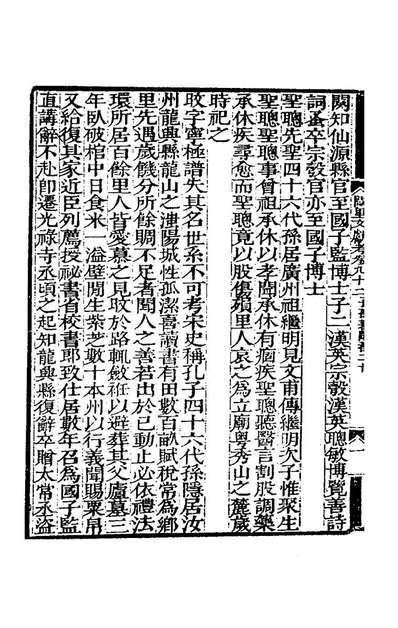 闕知仙源縣官至國子監博士子二漢英宗穀漢英聰敏博覽善詩
詞蚤卒宗穀官亦至國子博士
聖聰先聖四十六代孫居廣州祖繼明見文甫傳繼明次子惟聚生
聖聰聖聰事曾祖承休以孝聞承休有痼疾聖聰聽醫言割股調藥
承休疾尋愈而聖聰竟以股傷殞里人哀之為立廟粵秀山之麓歲
時祀之
旼字寧極譜失其名世系不可考宋史稱孔子四十六代孫隱居汝
州龍興縣龍山之滍陽城性孤潔喜讀書有田數百畝賦稅常為鄉
里先遇歲饑分所餘賙不足者聞人之善若出於已動止必依禮法
環所居百餘里人皆愛慕之見旼於路輒斂袵以避葬其父廬墓三
年臥破棺中日食米一溢壁閒生紫芝數十本州以行義聞賜粟帛
又給復其家近臣列薦授祕書省校書郎致仕居數年召為國子監
直講辭不赴即遷光祿寺丞頃之起知龍興縣復辭卒贈太常丞盜